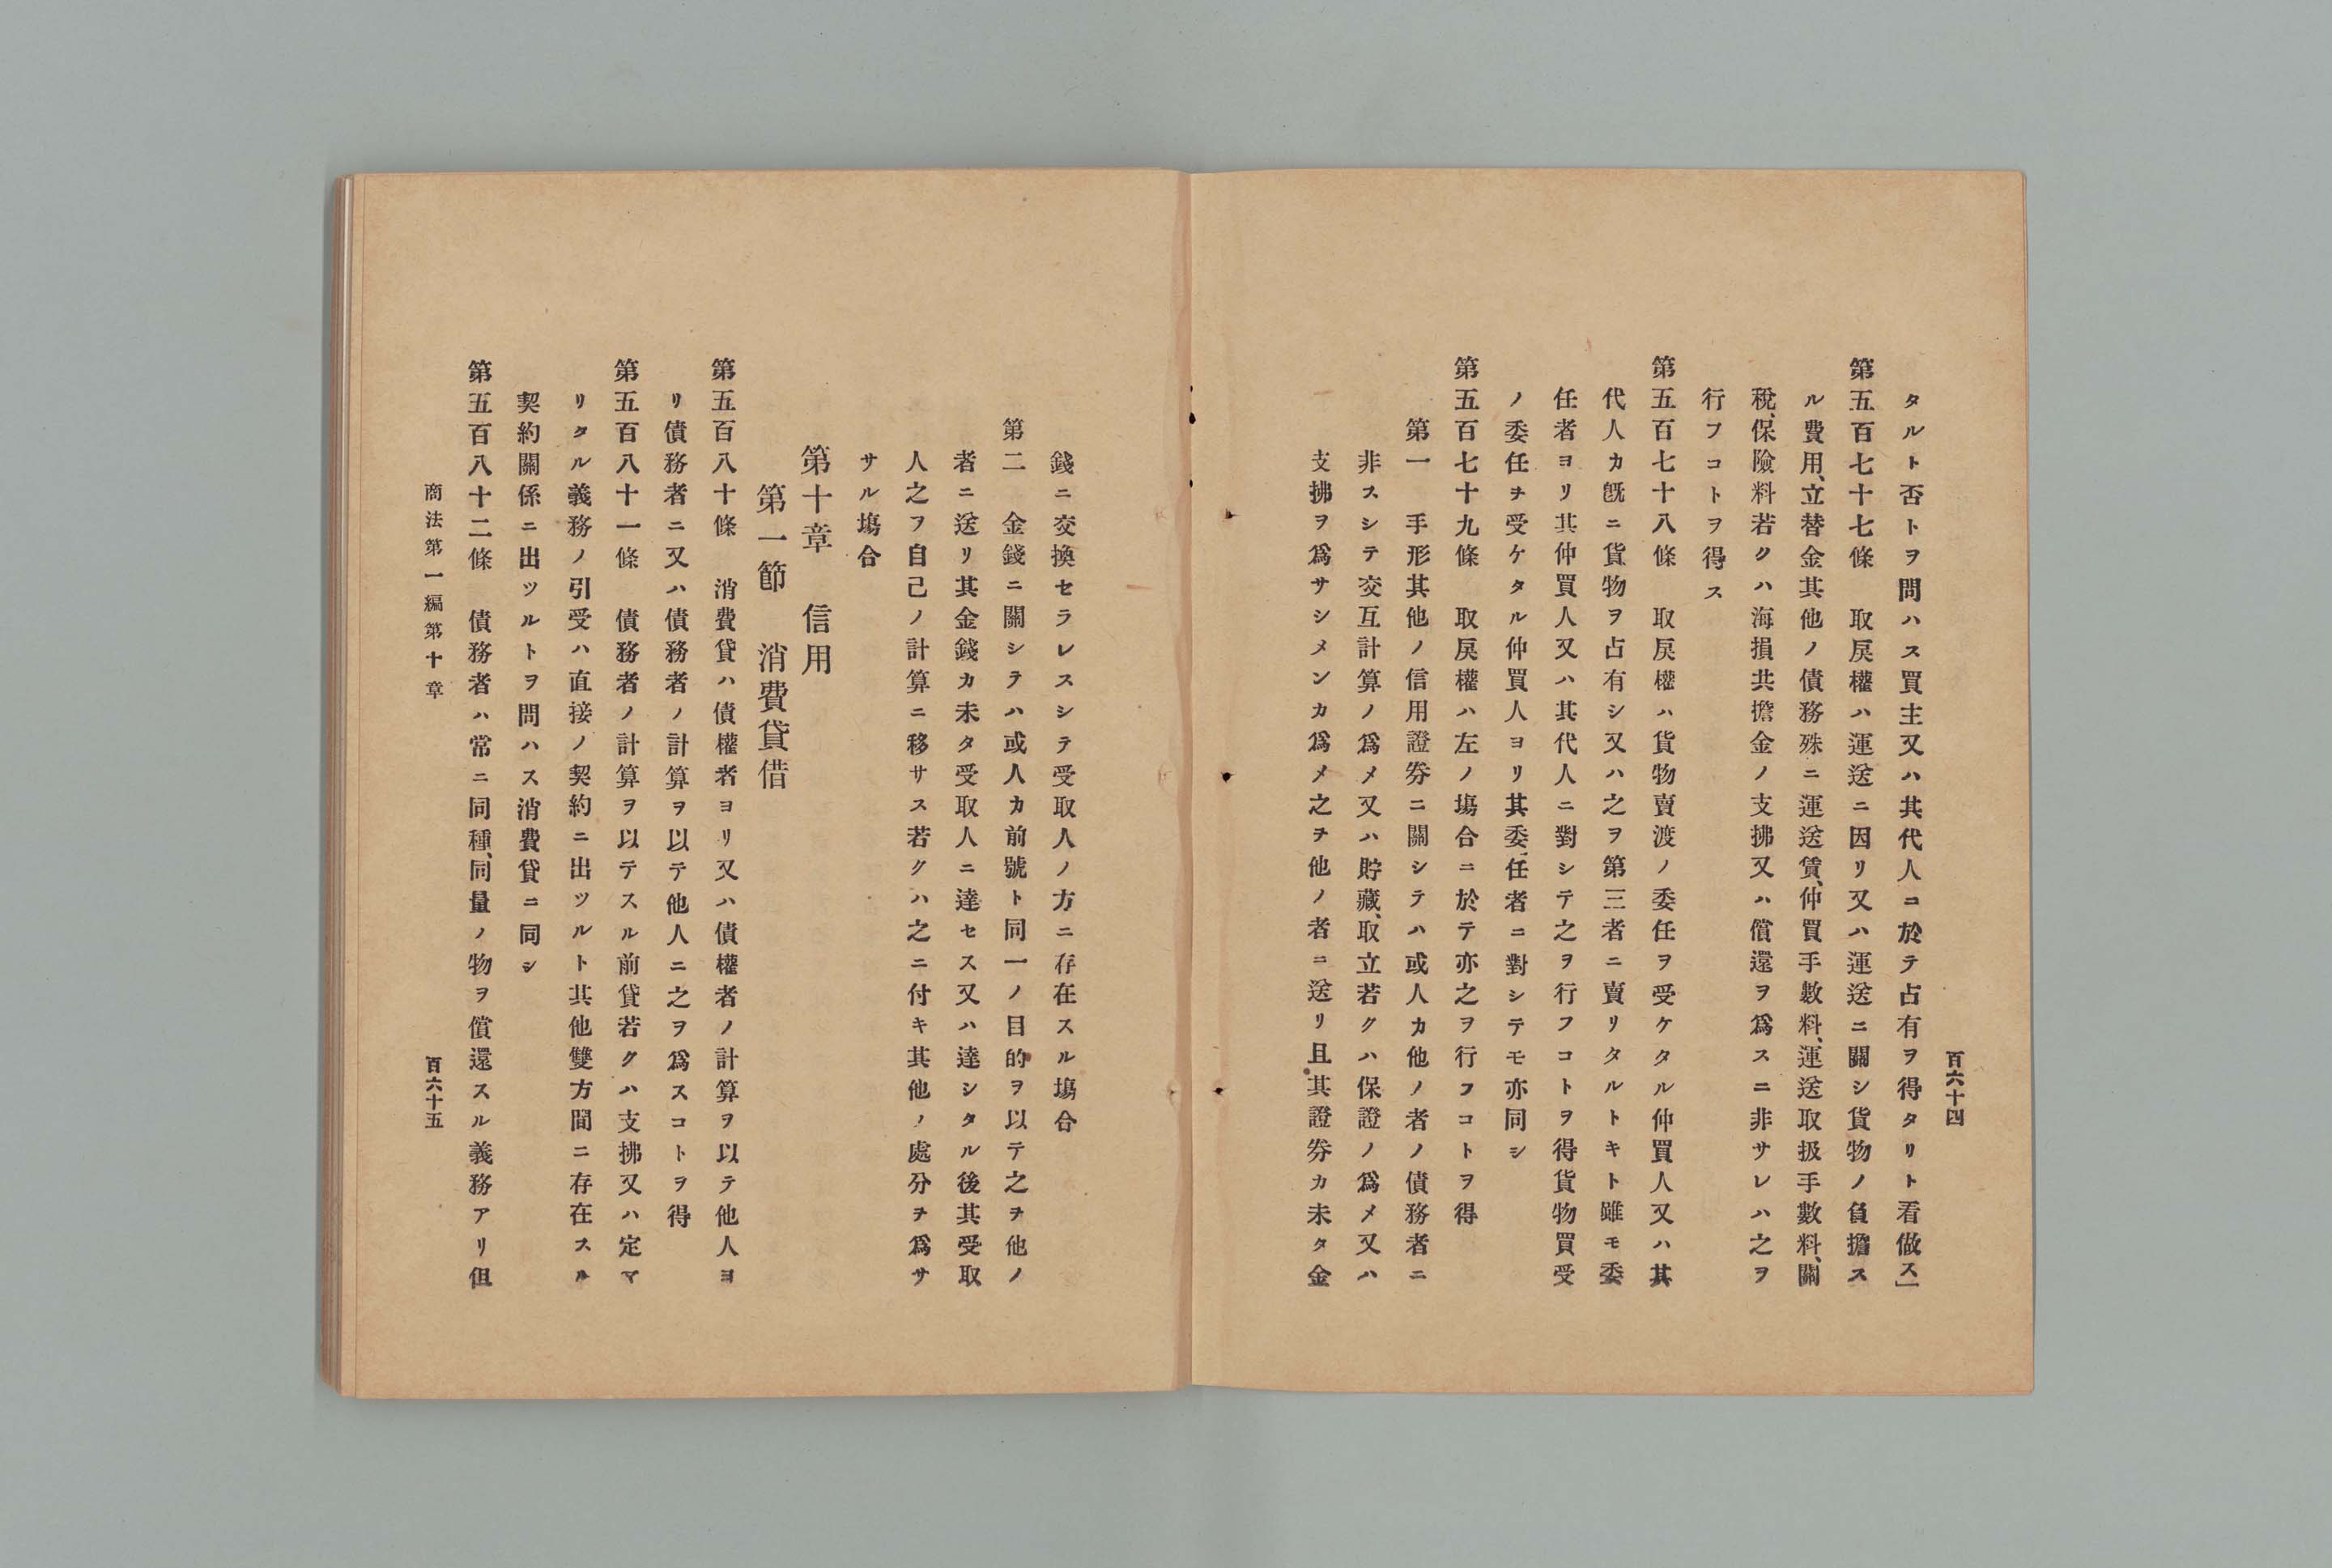 百六十四
タルト否トヲ問ハス買主又ハ其代人ニ於テ占有ヲ得タリト看做ス」
第五百七十七條　取戻權ハ運送ニ因リ又ハ運送ニ關シ貨物ノ負擔ス
ル費用、立替金其他ノ債務殊ニ運送賃、仲買手數料、運送取扱手數料、關
稅、保險料若クハ海損共擔金ノ支拂又ハ償還ヲ爲スニ非サレハ之ヲ
行フコトヲ得ス
第五百七十八條　取戻權ハ貨物賣渡ノ委任ヲ受ケタル仲買人又ハ其
代人カ旣ニ貨物ヲ占有シ又ハ之ヲ第三者ニ賣リタルトキト雖モ委
任者ヨリ其仲買人又ハ其代人ニ對シテ之ヲ行フコトヲ得貨物買受
ノ委任ヲ受ケタル仲買人ヨリ其委任者ニ對シテモ亦同シ
第五百七十九條　取戻權ハ左ノ塲合ニ於テ亦之ヲ行フコトヲ得
第一　手形其他ノ信用證券ニ關シテハ或人カ他ノ者ノ債務者ニ
非スシテ交互計算ノ爲メ又ハ貯藏、取立若クハ保證ノ爲メ又ハ
支拂ヲ爲サシメンカ爲メ之ヲ他ノ者ニ送リ且其證券カ未タ金
錢ニ交換セラレスシテ受取人ノ方ニ存在スル塲合
第二　金錢ニ關シテハ或人カ前號ト同一ノ目的ヲ以テ之ヲ他ノ
者ニ送リ其金錢カ未タ受取人ニ達セス又ハ達シタル後其受取
人之ヲ自己ノ計算ニ移サス若クハ之ニ付キ其他ノ處分ヲ爲サ
サル塲合
第十章　信用
第一節　消費貸借
第五百八十條　消費貸ハ債權者ヨリ又ハ債權者ノ計算ヲ以テ他人ヨ
リ債務者ニ又ハ債務者ノ計算ヲ以テ他人ニ之ヲ爲スコトヲ得
第五百八十一條　債務者ノ計算ヲ以テスル前貸若クハ支拂又ハ定マ
リタル義務ノ引受ハ直接ノ契約ニ出ツルト其他雙方間ニ存在スル
契約關係ニ出ツルトヲ問ハス消費貸ニ同シ
第五百八十二條　債務者ハ常ニ同種、同量ノ物ヲ償還スル義務アリ但
商法第一編第十章
百六十五